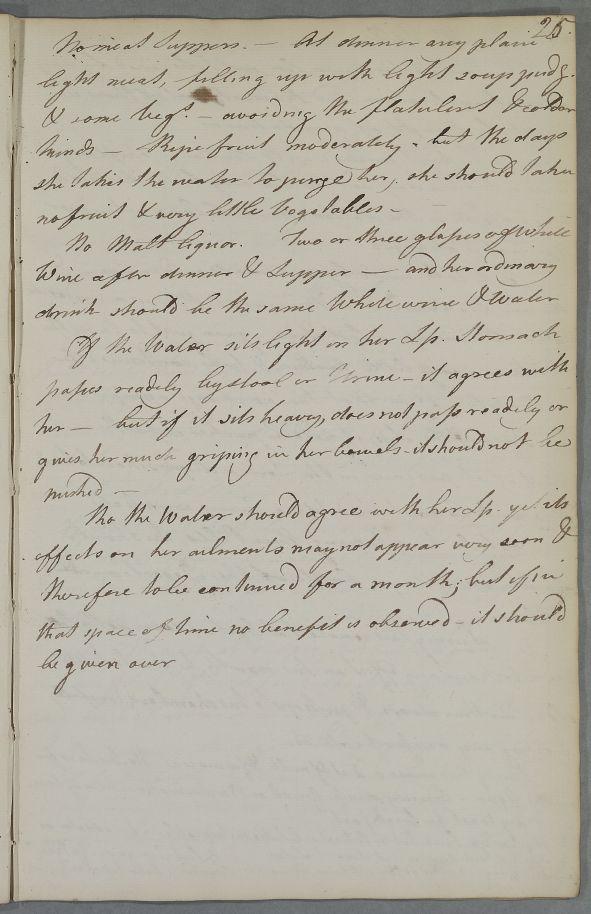 25.
No meat Suppers. — At dinner any plain
light meat, filling up with light soup pudg.
& some vegs. — avoiding the flatulent & colder
kinds — Ripe fruit moderately - but the days
she takes the water to purge her, she should take
no fruit & very little Vegetables —
No Malt liquor. Two or three glasses of White
Wine after dinner & Supper — and her ordinary
drink should be the same White wine & Water
If the Water sits light on her Lp. Stomach
passes readily by stool or Urine — it agrees with
her — but if it sits heavy, does not pass readily or
gives her much griping in her bowels - it should not be
pushed —
Tho the Water should agree with her Lp. yet its
effects on her ailments may not appear very soon &
therefore to be continued for a month; but if in
that space of time no benefit is observed — it should
be given over